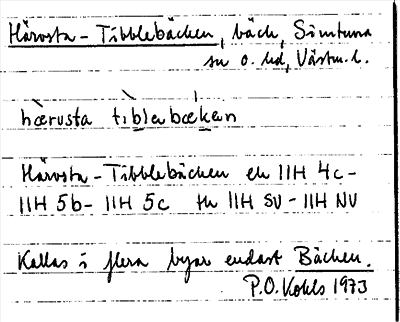 Härvsta - Tibblebäcken, bäck, Simtuna
sn o. hd, Västm. l.
hærusta tiblebækɛn
Härvsta - Tibblebäcken ek 11H 4c-
11H 5b- 11H 5c tk 11H SV - 11H NV
Kallas i flera byar endast Bäcken.
P.O. Kohls 1973